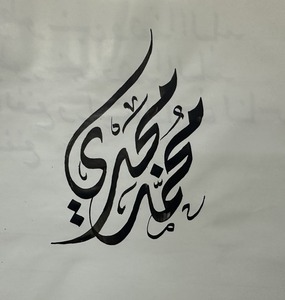 محمد مجدي